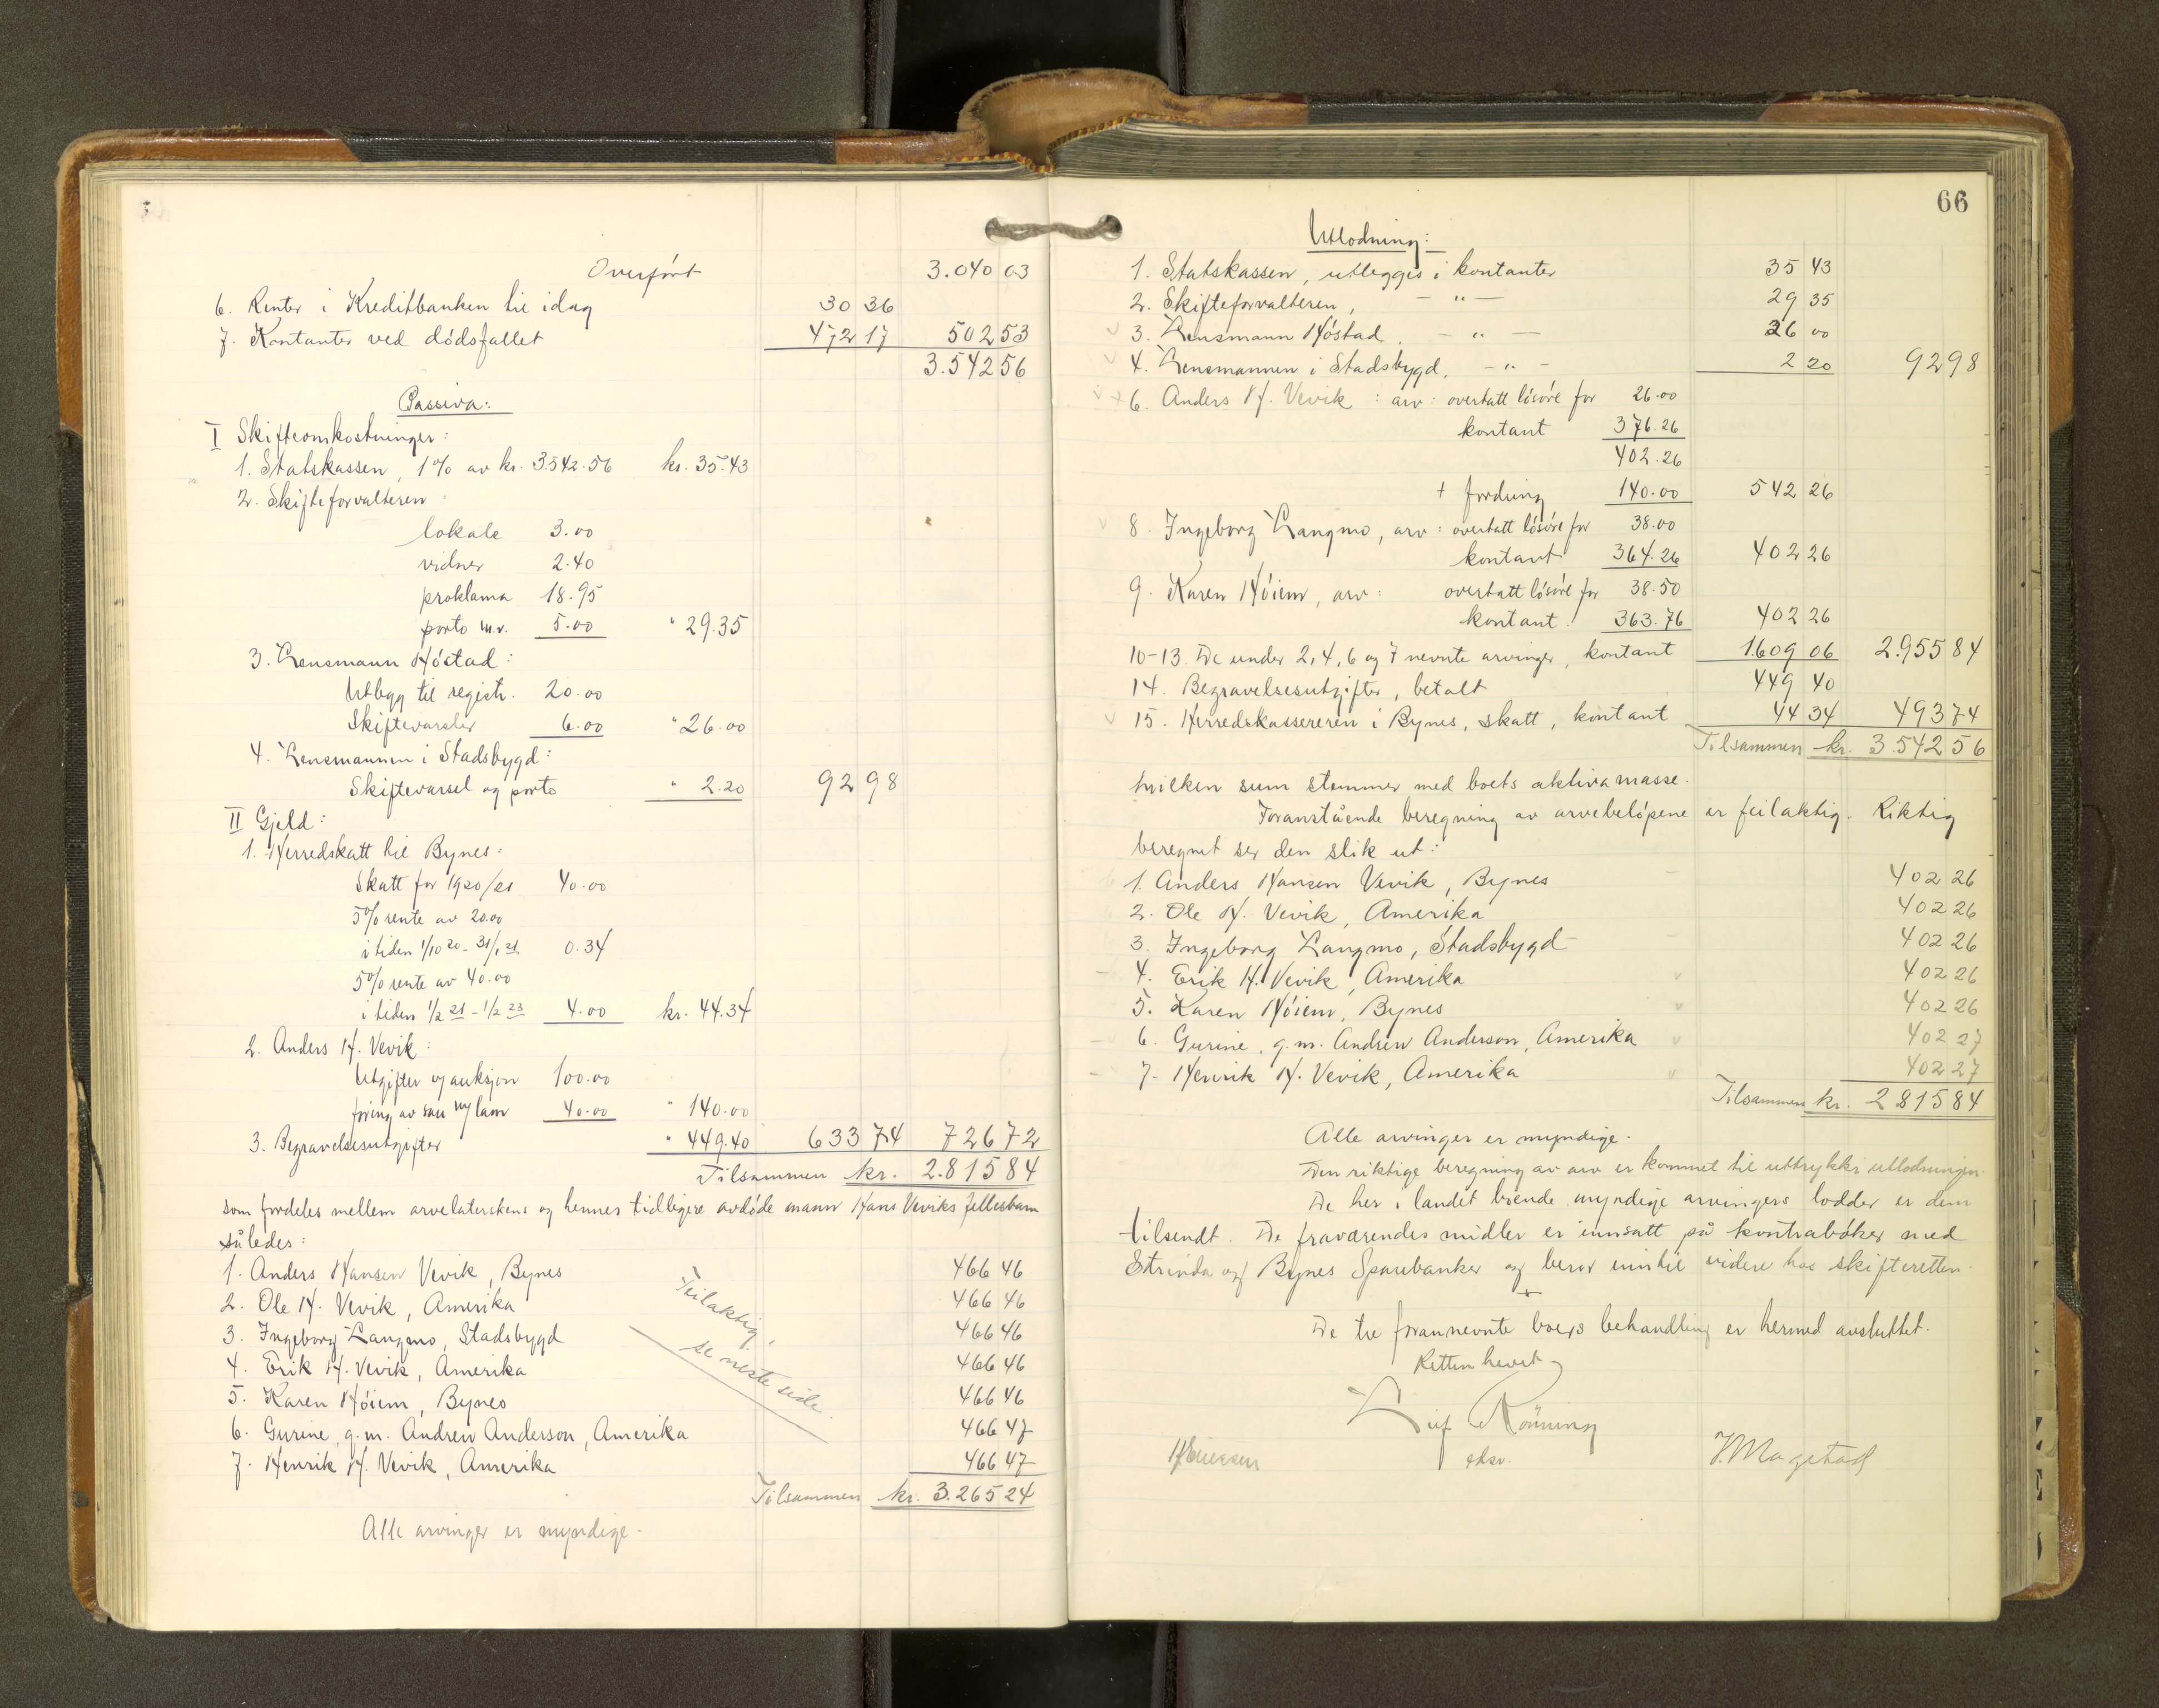 Overført 3.040 03
6. Renter i Kreditbanken til idag 30 36
7. Kontanter ved dødsfallet 472 17 502 53
3.542 56
Passiva:
I Skifteomkostninger:
1. Statskassen, 1% av kr. 3542.56 kr. 35.43
2. Skifteforvalteren
lokale 3.00
vidner 2.40
proklama 18.95
porto m.v. 5.00 " 29.35
3. Lensmann Høstad:
Utlegg til registr. 20.00
Skiftevarsler 6.00 " 26.00
4. Lensmannen i Stadsbygd:
Skiftevarsel og porto " 2.20 92 98
II Gjeld:
1. Herredskatt til Bynes:
Skatt for 1920/21 40.00
5% rente av 20.00
i tiden 1/10 20 - 31/1 21 0.34
5% rente av 40.00
i tiden 1/2 21 - 1/2 23 4.00 kr. 44.34
2. Anders H. Vevik:
Utgifter v/ auksjon 100.00
foring av sau m/ lam 40.00 " 140.00
3. Begravelsesutgifter " 449.40 633 74 726 72
Tilsammen kr. 2.815 84
som fordeles mellem arvelaterskens og hennes tidligere avdøde mann Hans Veviks fellesbarn
således:
1. Anders Hansen Vevik, Bynes 466 46
2. Ole H. Vevik, Amerika 466 46
3. Ingeborg Langmo, Stadsbygd 466 46
4. Erik H. Vevik, Amerika 466 46
5. Karen Høiem, Bynes 466 46
6. Gurine, g.m. Andrew Anderson, Amerika 466 47
7. Henrik H. Vevik, Amerika 466 47
Feilaktig!
se neste side.
Tilsammen kr. 3.265 24
Alle arvinger er myndige.
66
Utlodning:
1. Statskassen, utlegges i kontanter 35 43
2. Skifteforvalteren, - " - 29 35
3. Lensmann Høstad, - " - 26 00
4. Lensmannen i Stadsbygd, - " - 2 20 92 98
6. Anders H. Vevik: arv: overtatt løsøre for 26.00
kontant 376.26
402.26
+ fordring 140.00 542 26
8. Ingeborg Langmo, arv: overtatt løsøre for 38.00
kontant 364.26 402 26
9. Karen Høiem, arv: overtatt løsøre for 38.50
kontant 363.76 402 26
10-13. De under 2, 4, 6 og 7 nevnte arvinger, kontant 1.609 06 2.955 84
14. Begravelsesutgifter, betalt 449 40
15. Herredskassereren i Bynes, skatt, kontant 44 34 493 74
Tilsammen kr. 3.542 56
hvilken sum stemmer med boets aktivamasse.
Foranstående beregning av arvebeløpene er feilaktig. Riktig
beregnet ser den slik ut:
1. Anders Hansen Vevik, Bynes 402 26
2. Ole H. Vevik, Amerika 402 26
3. Ingeborg Langmo, Stadsbygd 402 26
4. Erik H. Vevik, Amerika 402 26
5. Karen Høiem, Bynes 402 26
6. Gurine, g.m. Andrew Anderson, Amerika 402 27
7. Henrik H. Vevik, Amerika 402 27
Tilsammen kr. 2 815 84
Alle arvinger er myndige.
Den riktige beregning av arv er kommet til uttrykk i utlodningen.
De her i landet boende myndige arvingers lodder er dem
tilsendt. De fraværendes midler er innsatt på kontrabøker med
Strinda og Bynes Sparebanker og beror inntil videre hos skifteretten.
De tre forannevnte boers behandling er hermed avsluttet.
Retten hevet
Leif Rønning
eksv.
J. Magstad